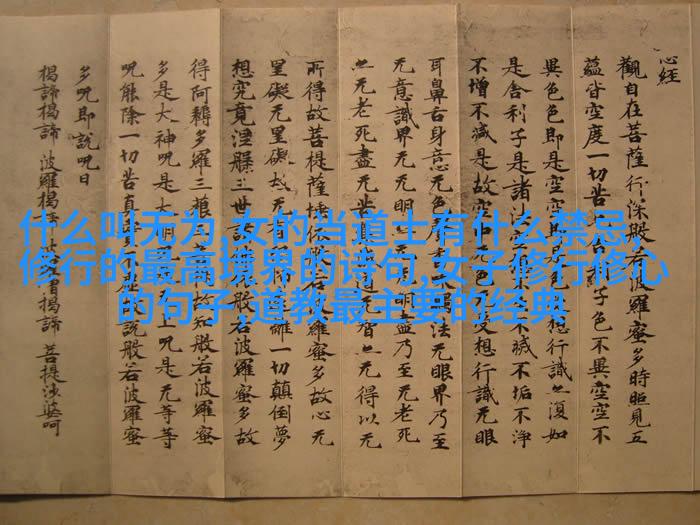 心经
觀自在菩薩行深般若波羅蜜多時照見五
蘊皆空度一切苦子色不異空空不
異色色即是空空即是想行識亦復如
是舍利子是諸法空不滅不垢不淨
不增不減是故空中无色受想行識无眼
耳鼻舌身意无色聲法无眼界乃至
无意識界无无明明盡乃至无老死
亦无老死盡无苦道无智亦无得以无
所得故菩提薩埵依般若波羅蜜多故心无
罣礙无罣礙故无有離一切顛倒夢
想究竟涅槃三世諸般若波羅蜜多故
得阿耨多羅三藐三故知般若波羅蜜
多是大神呪是大明上呪是无等等
呪能除一切苦真實說般若波羅蜜
多呪即說呪曰
揭諦揭諦 波羅揭諦 僧揭諦 菩提薩婆呵
什么叫无为,女的当道士有什么禁忌,
修行的最高境界的诗句,女子修行修心
的句子,道教最主要的经典